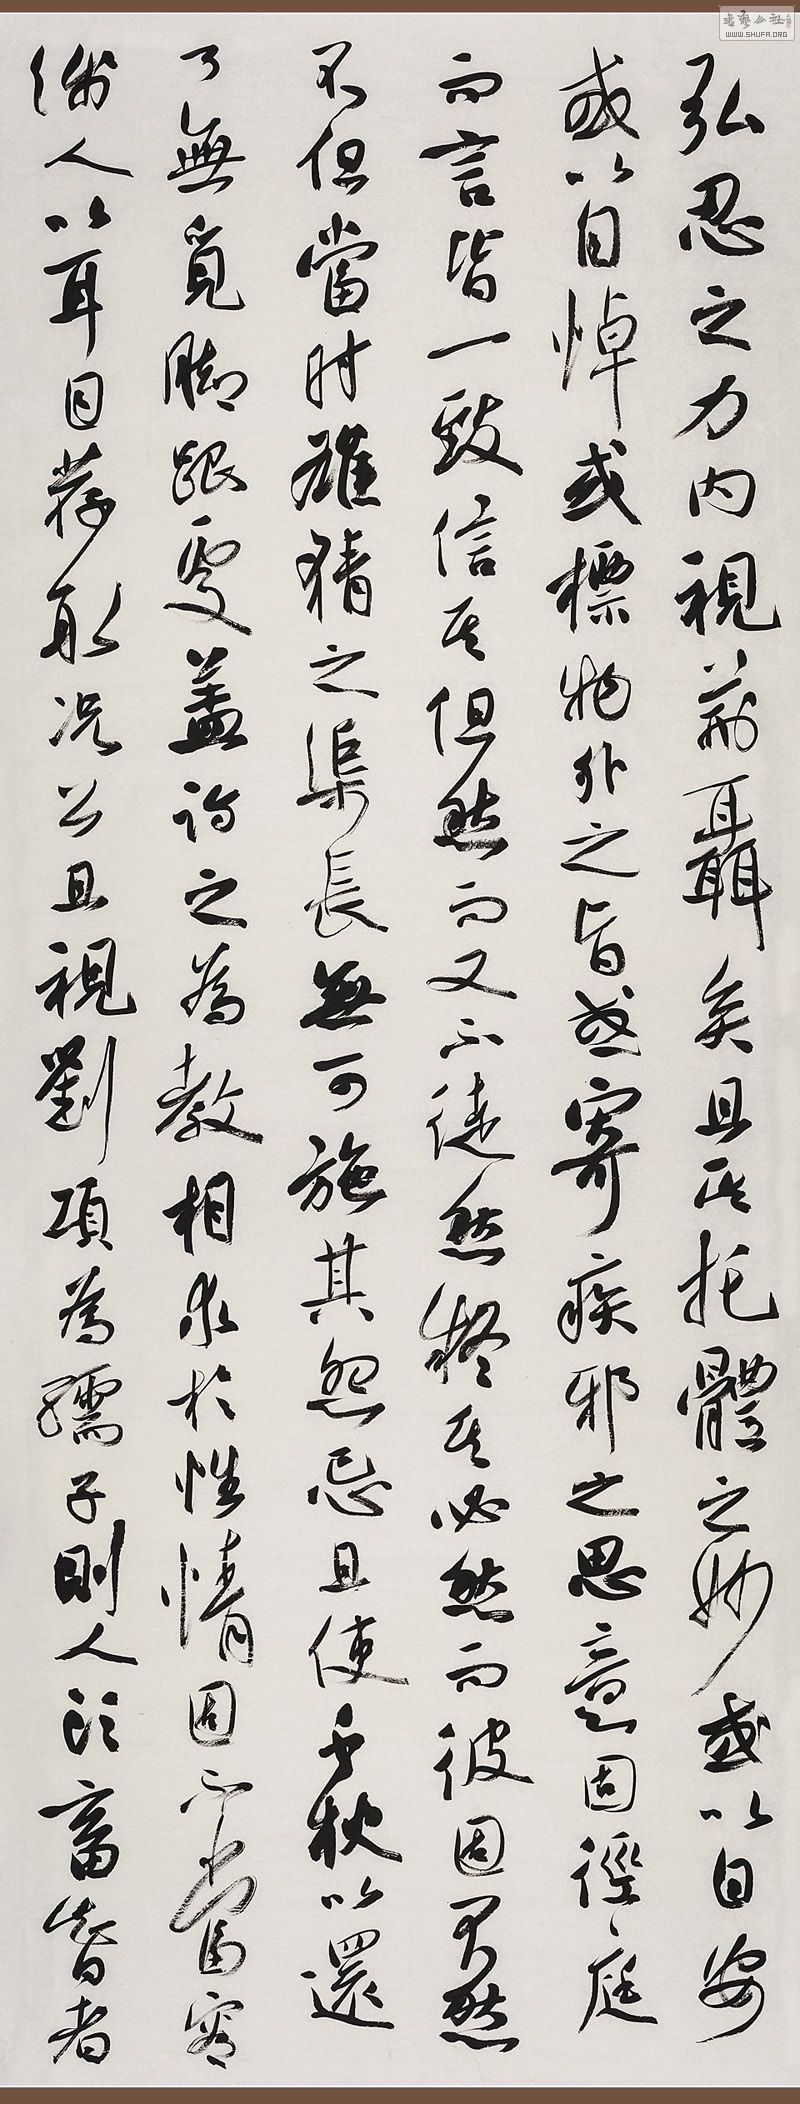 弘忍之力内視前聶矣且其托體之妙或以自安
或以自悼或標物外之旨或寄疾邪之思意固徑庭
而言皆一致信其但然而又不徒然疑其必然而彼固不然
不但當时雄猜之渠長無可施其怨忌且使千秋以還
了無覓脚跟處蓋詩之為教相求於性情固不當容
淺人以耳目荐取况公且視劉項為孺子則人頭畜智者
書艺公社
WWW.SHUFA.ORG